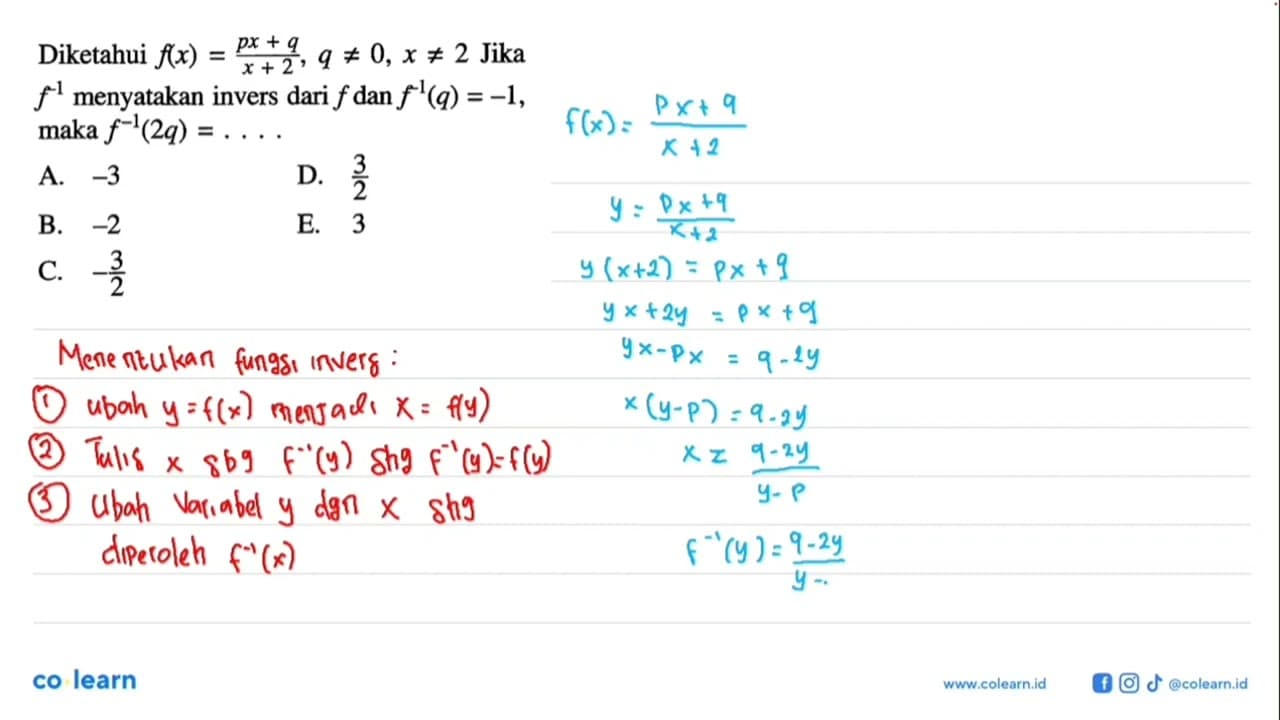 Diketahui f(x) = \frac{px + q}{x + 2}, q ≠ 0, x ≠ 2 Jika
f^{-1} menyatakan invers dari f dan f^{-1}(q) = –1,
maka f^{-1}(2q) = . . . .
A. –3
B. –2
C. –\frac{3}{2}
D. \frac{3}{2}
E. 3
Menentukan fungsi invers :
① Ubah y = f(x) menjadi x = f(y)
② Tulis x sbg f^{-1}(y) shg f^{-1}(y) = f(y)
③ Ubah Variabel y dgn x shg
diperoleh f^{-1}(x)
f(x) = \frac{px + q}{x + 2}
y = \frac{px + q}{x + 2}
y (x+2) = px + q
yx + 2y = px + q
yx - px = q - 2y
x (y-p) = q - 2y
x = \frac{q - 2y}{y - p}
f^{-1}(y) = \frac{q - 2y}{y -}
co learn
www.colearn.id
@colearn.id